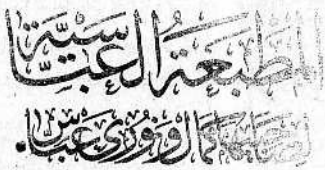 المَطْبَعَةُ العَبَّاسِيَّة
لصاحبها كمال ونوري عباس